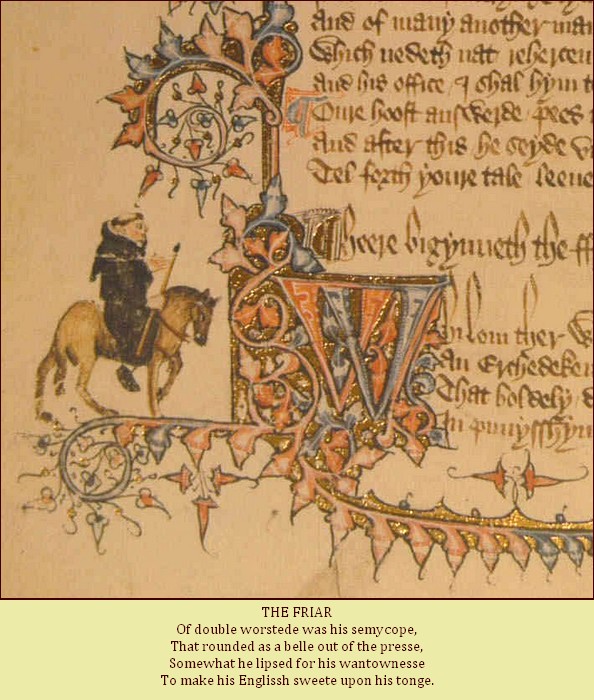 and of many another
Which nedeth nat
and his office I shal hym
Oure hoost answerde pees
And after this he seyde
Tel forth youre tale leeue
Heere bigynneth the
Whilom ther
An
That boldely
In
THE FRIAR
Of double worstede was his semycope,
That rounded as a belle out of the presse,
Somewhat he lipsed for his wantownesse
To make his Englissh sweete upon his tonge.